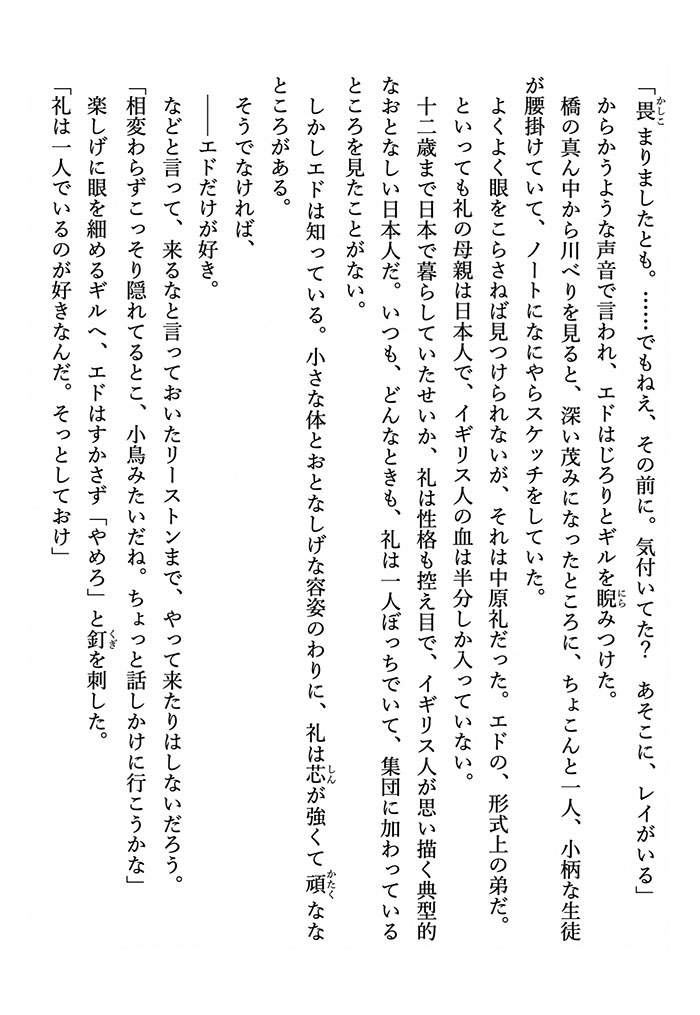 「畏まりましたとも。……でもねえ、その前に。気付いてた?　あそこに、レイがいる」
からかうような声音で言われ、エドはじろりとギルを睨みつけた。
橋の真ん中から川べりを見ると、深い茂みになったところに、ちょこんと一人、小柄な生徒
が腰掛けていて、ノートになにやらスケッチをしていた。
よくよく眼をこらさねば見つけられないが、それは中原礼だった。エドの、形式上の弟だ。
といっても礼の母親は日本人で、イギリス人の血は半分しか入っていない。
十二歳まで日本で暮らしていたせいか、礼は性格も控え目で、イギリス人が思い描く典型的
なおとなしい日本人だ。いつも、どんなときも、礼は一人ぼっちでいて、集団に加わっている
ところを見たことがない。
しかしエドは知っている。小さな体とおとなしげな容姿のわりに、礼は芯が強くて頑なな
ところがある。
そうでなければ、
――エドだけが好き。
などと言って、来るなと言っておいたリーストンまで、やって来たりはしないだろう。
「相変わらずこっそり隠れてるとこ、小鳥みたいだね。ちょっと話しかけに行こうかな」
楽しげに眼を細めるギルへ、エドはすかさず「やめろ」と釘を刺した。
「礼は一人でいるのが好きなんだ。そっとしておけ」